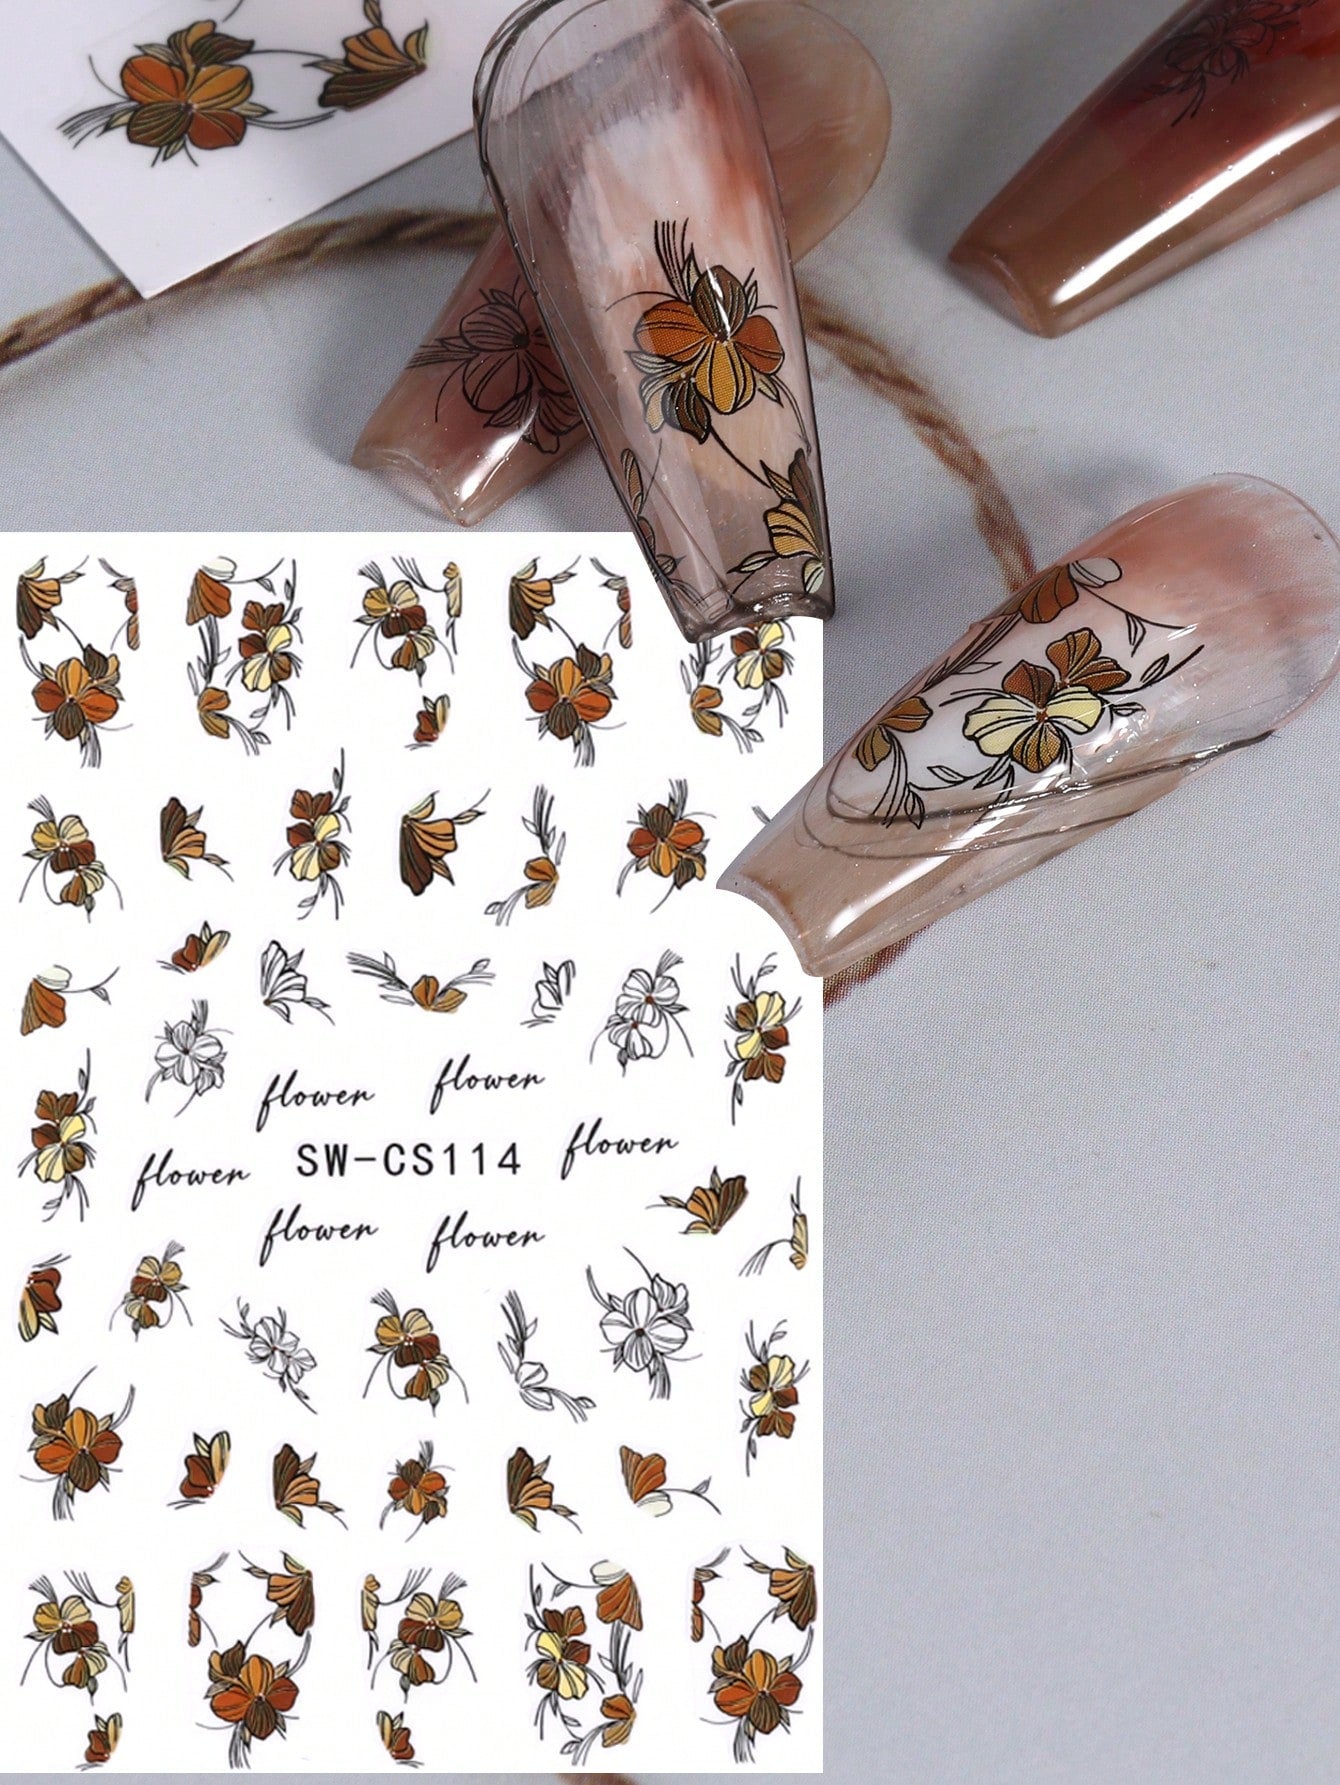 flower
flower
flower
SW-CS114
flower
flower
flower